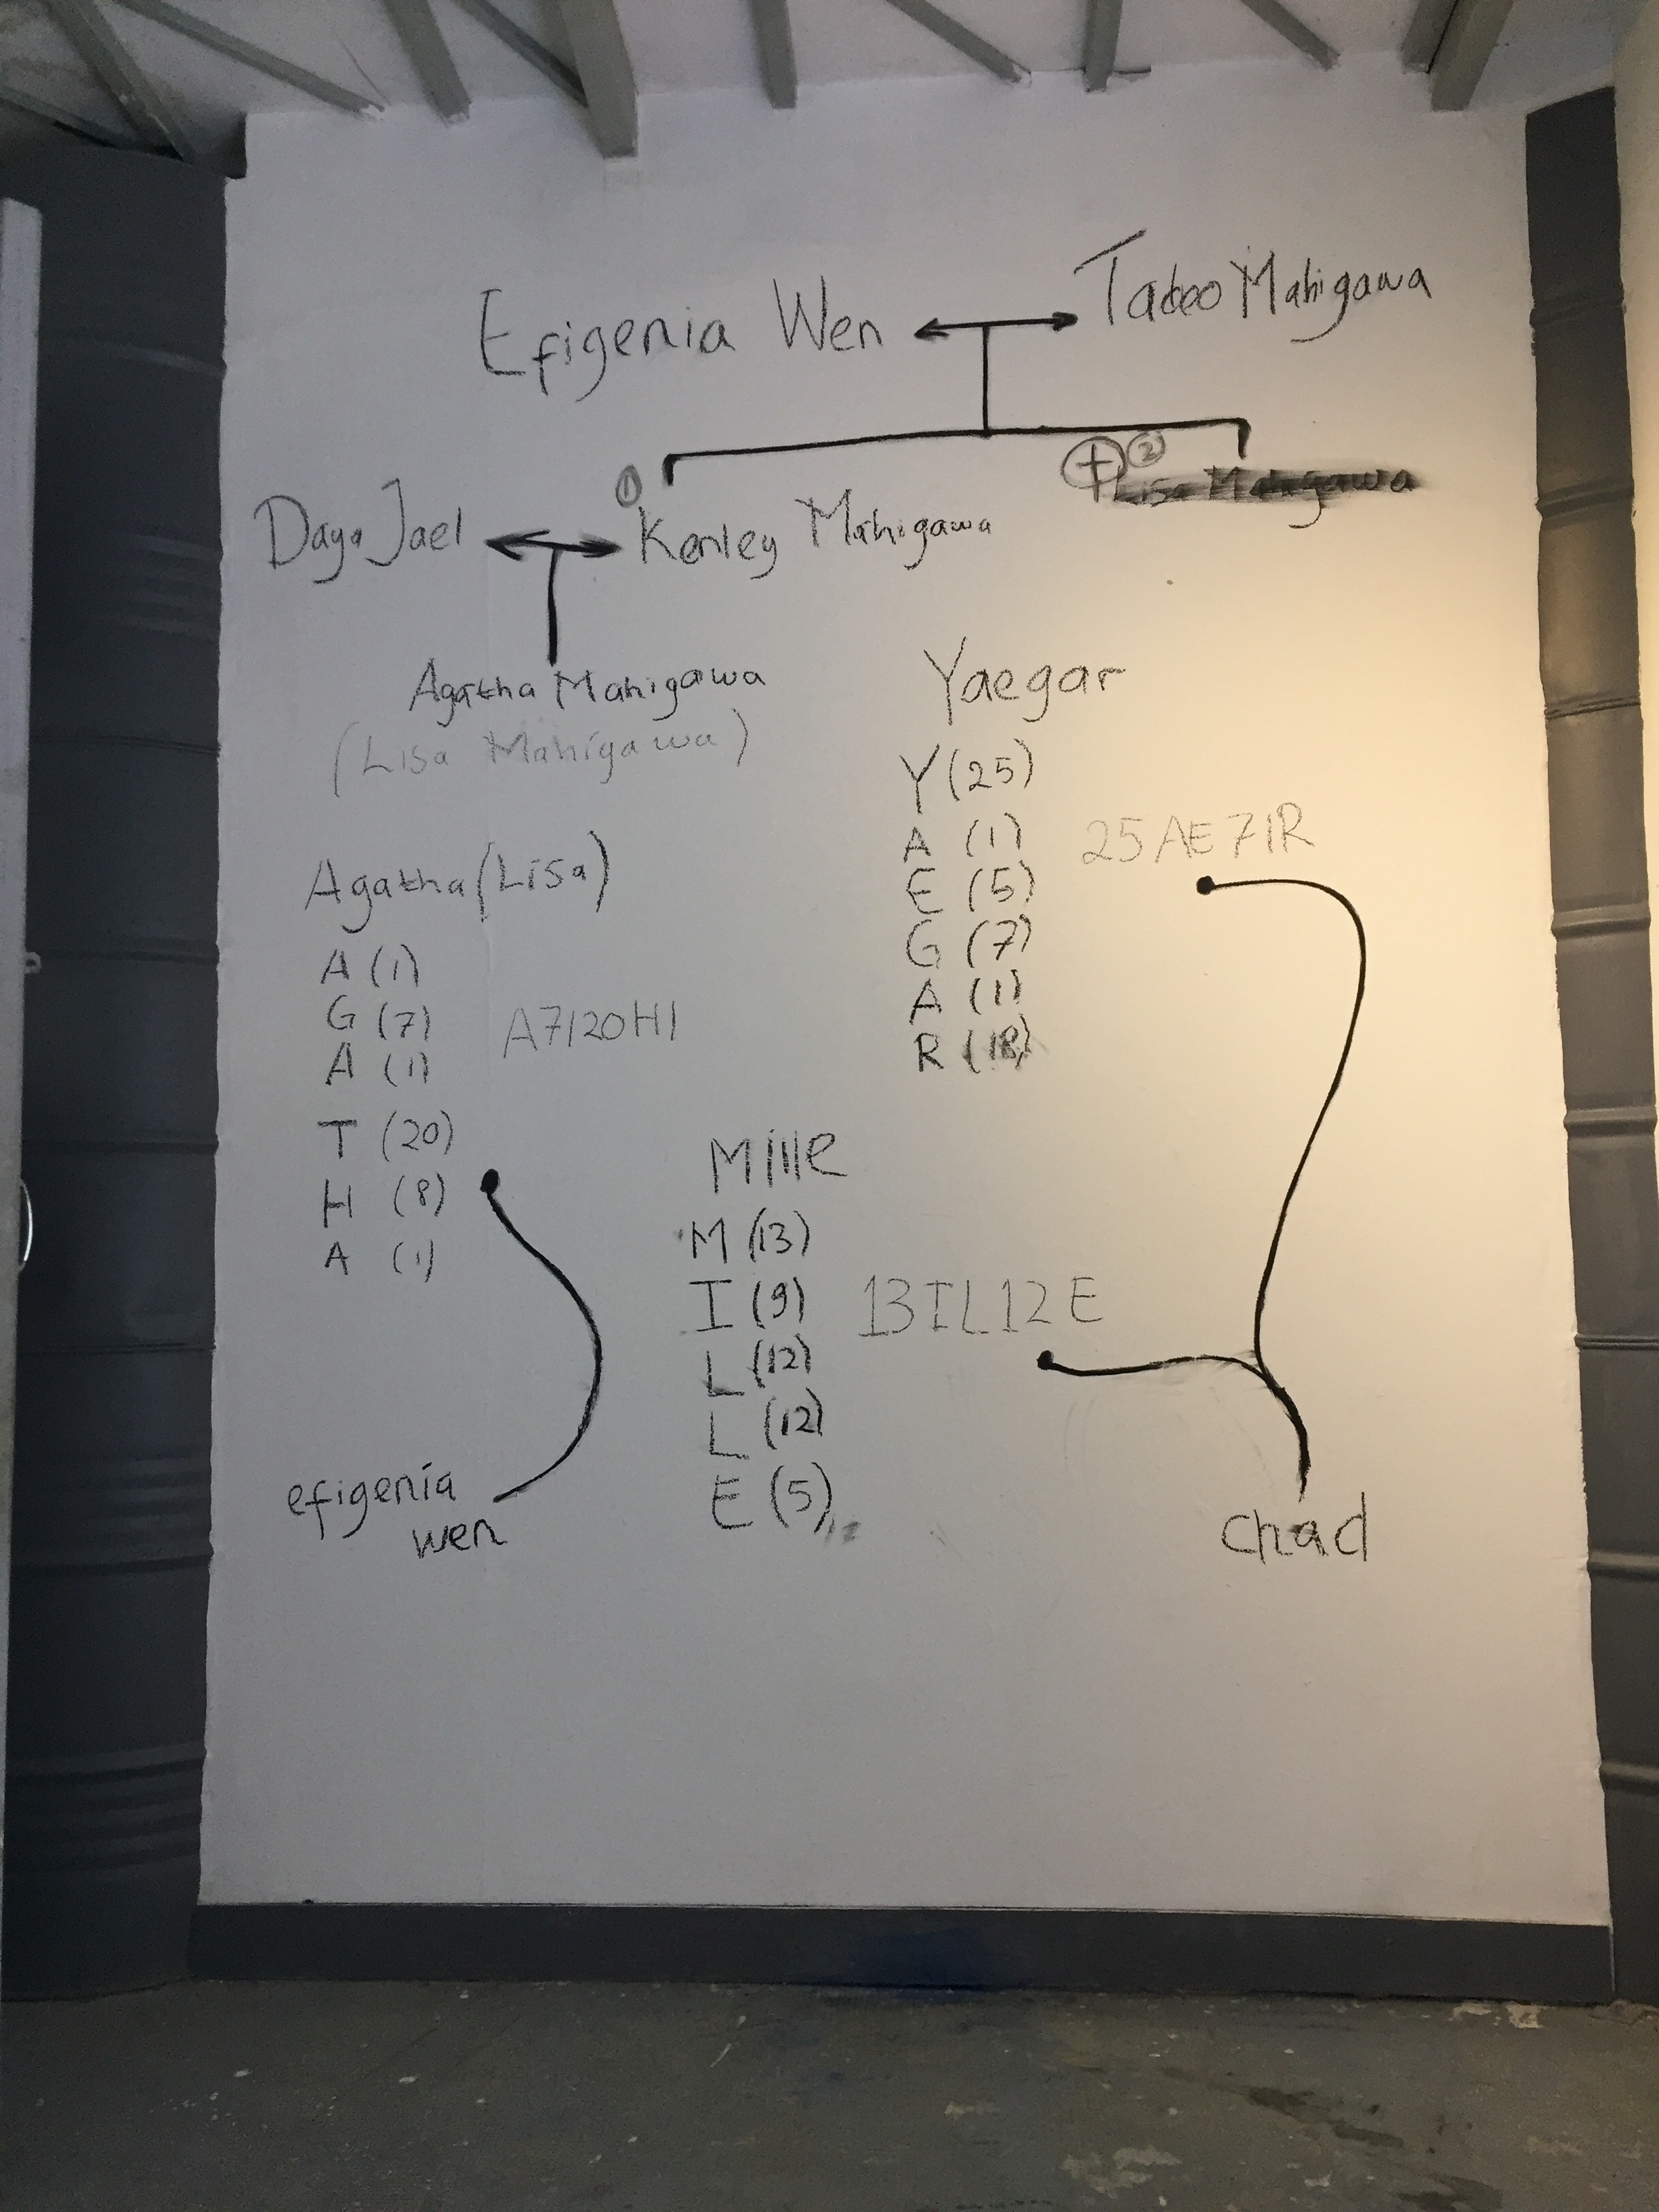 Efigenia Wen
Tadeo Mahigawa
① Kenley Mahigawa
② Lisa Mahigawa
Daya Jael
Agatha Mahigawa
(Lisa Mahigawa)
Agatha (Lisa)
A (1)
G (7)
A (1)
T (20)
H (8)
A (1)
A7120H1
efigenia
wen
Yaegar
Y (25)
A (1)
E (5)
G (7)
A (1)
R (18)
25AE71R
Mille
M (13)
I (9)
L (12)
L (12)
E (5)
13IL12E
chad